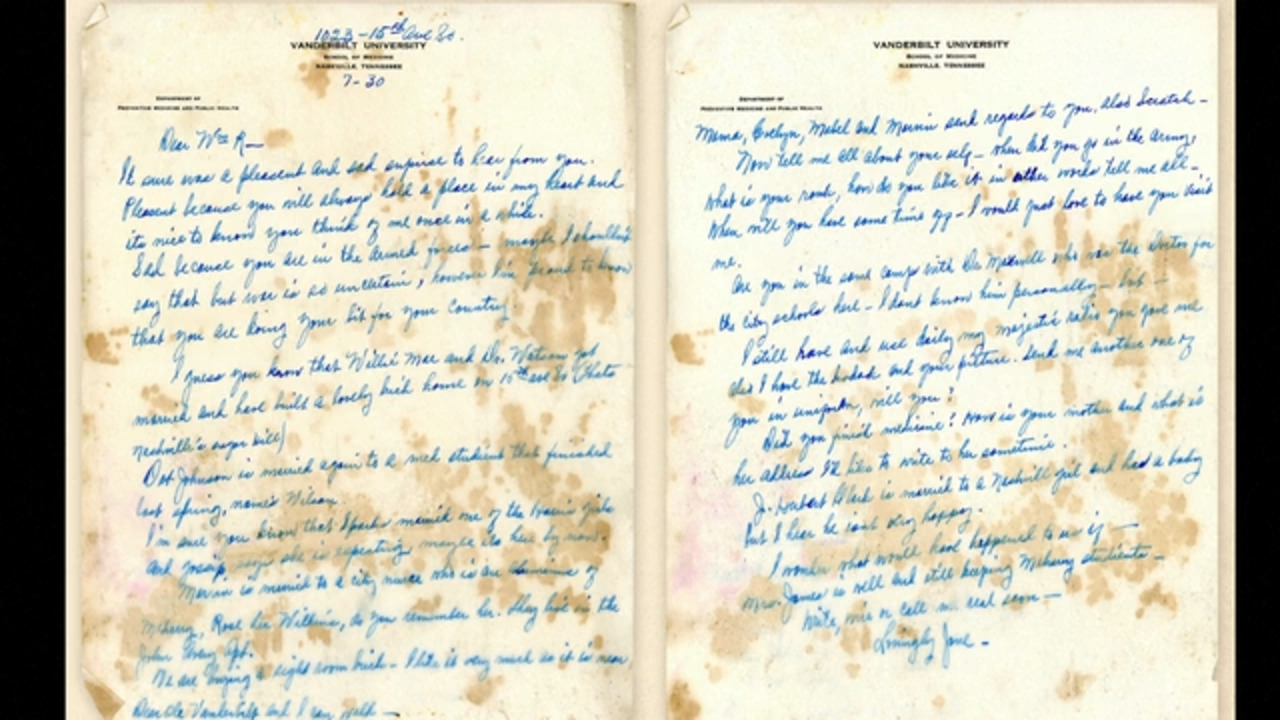 1023-15th Ave So.
VANDERBILT UNIVERSITY
SCHOOL OF MEDICINE
NASHVILLE, TENNESSEE
7-30
DEPARTMENT OF
PREVENTIVE MEDICINE AND PUBLIC HEALTH
Dear Wm R—
It sure was a pleasent and sad suprise to hear from you.
Pleasent because you will always hold a place in my heart and
its nice to know you think of me once in a while.
Sad because you are in the armed forces — maybe I shouldn't
say that but war is so uncertain, however I'm proud to know
that you are doing your bit for your country.
I guess you know that Willie Mae and Dr. Watson got
married and have built a lovely brick home on 15th ave So (thats
nashville's sugar hill)
Dot Johnson is married again to a med student that finished
last spring, name's Wilson.
I'm sure you know that Sparks married one of the girls
and gossip says she is expecting maybe its here by now.
Marvin is married to a city nurse who is an of
Meharry, Rose Lee Wilkins, do you remember her. They live in the
John Apt.
We are buying a eight room brick - I like it very much as it is near
Dear Ole Vanderbilt and I can walk —
VANDERBILT UNIVERSITY
SCHOOL OF MEDICINE
NASHVILLE, TENNESSEE
DEPARTMENT OF
PREVENTIVE MEDICINE AND PUBLIC HEALTH
Mama, Evelyn, Mabel and Marvin send regards to you, also Scratch —
Now tell me all about your self — when did you go in the army,
what is your rank, how do you like it in other words tell me all —
When will you have some time off — I would just love to have you visit
me.
Are you in the same camp with Dr. who was the doctor for
the city schools here — I dont know him personally — but —
I still have and use daily my majestic radio you gave me
also I have the and your picture. Send me another one of
you in uniform, will you?
Did you finish medicine? How is your mother and what is
her address I'd like to write to her sometime.
J. Hubert is married to a Nashville girl and has a baby
but I hear he isnt very happy.
I wonder what would have happened to us if —
Mrs. James is well and still keeping Meharry students —
Write, wire or call me real soon —
Lovingly Jane —